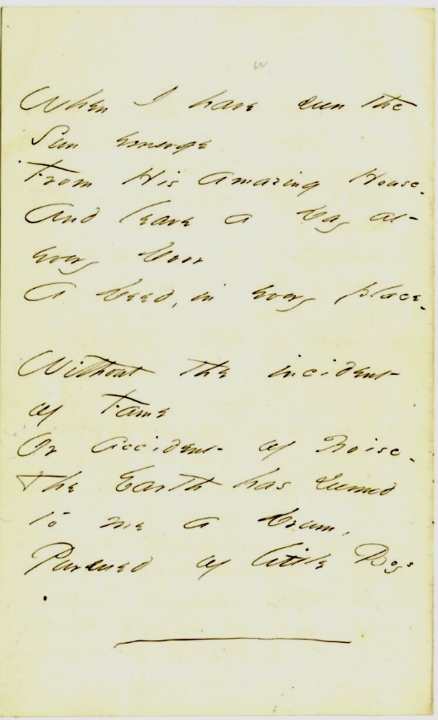 When I have seen the
Sun emerge
From His amazing House -
And leave a Day at
every Door
A Deed, in every place -
Without the incident
of Fame
Or accident of Noise -
The Earth has seemed
to me a Drum,
Pursued of little Boys